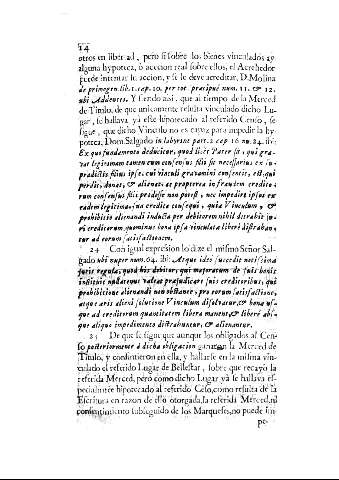 14
otros en libertad, pero si sobre los bienes vinculados ay
alguna hypoteca, ò accion real sobre ellos, el Acrehedor
puede intentar su accion, y se le deve acreditar, D. Molina
de primogen. lib. 1. cap. 10. per tot. præcipuè num. 11. & 12.
ubi Addentes. Y siendo assi, que al tiempo de la Merced
de Titulo, de que unicamente resulta vinculado dicho Lu-
gar, se hallava yà este hipotecado al referido Censo, se
sigue, que dicho Vinculo no es capaz para impedir la hy-
poteca, Dom. Salgado in labyrint. part. 2. cap. 16 no. 24. ibi:
Ex quo fundamento deducitur, quod licet Pater sit, qui gra-
vat legitimam tamen cum consensus filii sit necessarius ex su-
pradictis filius ipse, cui vinculi gravamini consentit, est, qui
perdit, donat, & alienat; & propterea in fraudem credito-
rum consensus filii prodesse non potest, nec impedire ipsos ex
eadem legitima, sua credita consequi, quia Vinculum, &
prohibitio alienandi inducta per debitorem nihil detrahit iu-
ri creditorum quominus bona ipsa vinculata liberè distrahan-
tur ad eorum satisfactionem.
24 Con igual expression lo dize el mismo Señor Sal-
gado ubi nuper num. 64. ibi: Atque ideò succedit notissima
juris regula, quod his debitor, qui majoratum de suis bonis
instituit nullatenus valeat præjudicare suis creditoribus, qui
prohibitione alienandi non obstante, pro eorum satisfactione,
atque æris alieni solutione Vinculum dissolvatur, & bona us-
que ad creditorum quantitatem libera maneant, & liberè abs-
que aliquo impedimento distrahuntur, & alienantur.
25 De que se sigue que aunque los obligados al Cen-
so posteriormente à dicha obligacion ganaron la Merced de
Titulo, y consintieron en ella, y hallarse en la misma vin-
culado el referido Lugar de Bellestar, sobre que recayò la
referida Merced, pero como dicho Lugar yà se hallava es-
pecialmente hipotecado al referido Cẽso, como resulta de la
Escritura en razon de ello otorgada, la referida Merced, ni
consentimiento subseguido de los Marqueses, no puede im-
pe-